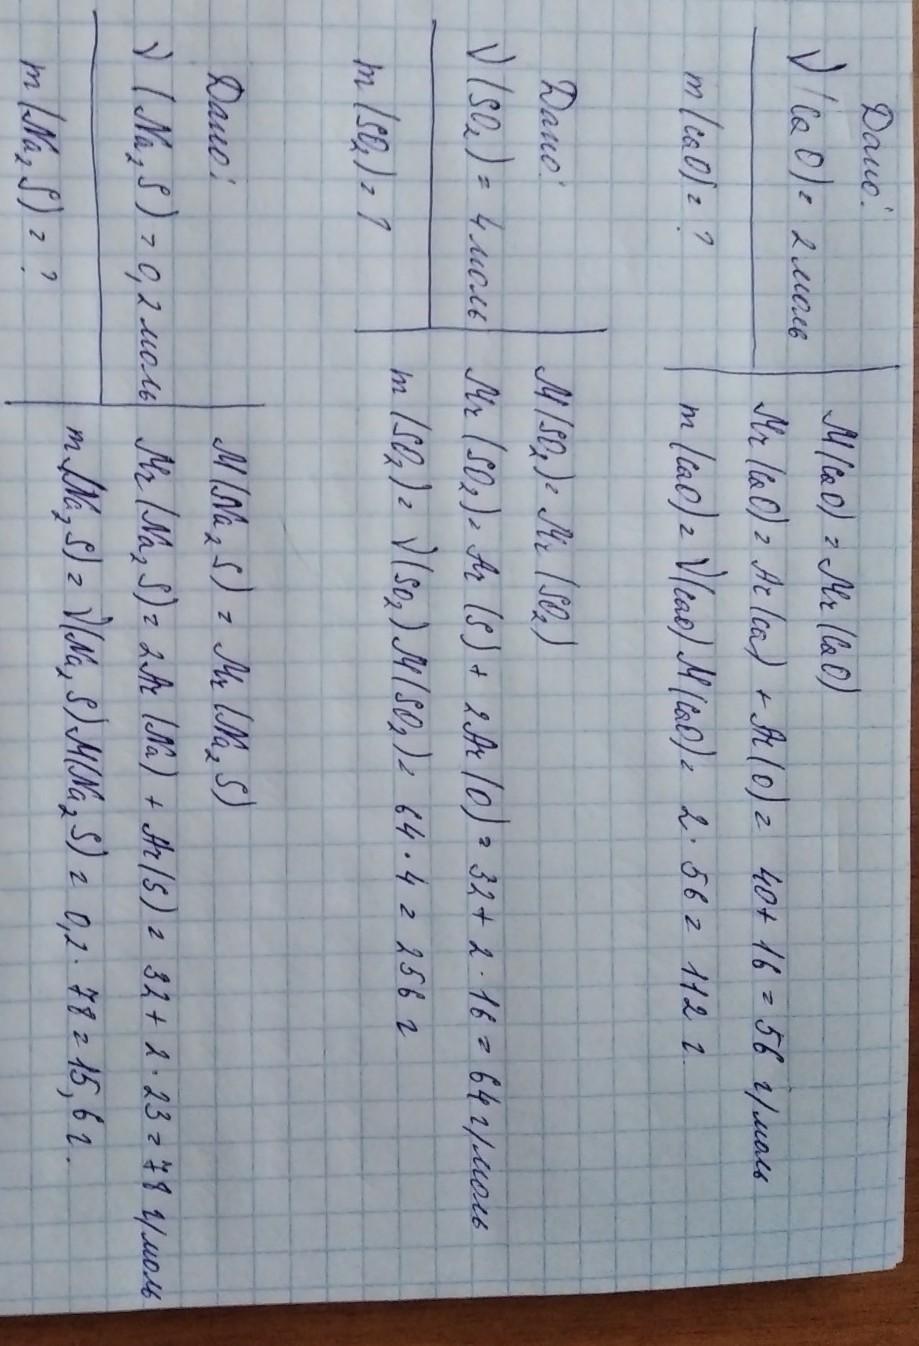 Дано:
ν(CaO) = 2 моль
m(CaO) = ?
M(CaO) = Mr(CaO)
Mr(CaO) = Ar(Ca) + Ar(O) = 40 + 16 = 56 г/моль
m(CaO) = ν(CaO) M(CaO) = 2 · 56 = 112 г.
Дано:
ν(SO₂) = 4 моль
m(SO₂) = ?
M(SO₂) = Mr(SO₂)
Mr(SO₂) = Ar(S) + 2Ar(O) = 32 + 2 · 16 = 64 г/моль
m(SO₂) = ν(SO₂) M(SO₂) = 64 · 4 = 256 г
Дано:
ν(Na₂S) = 0,2 моль
m(Na₂S) = ?
M(Na₂S) = Mr(Na₂S)
Mr(Na₂S) = 2Ar(Na) + Ar(S) = 32 + 2 · 23 = 78 г/моль
m(Na₂S) = ν(Na₂S) M(Na₂S) = 0,2 · 78 = 15,6 г.